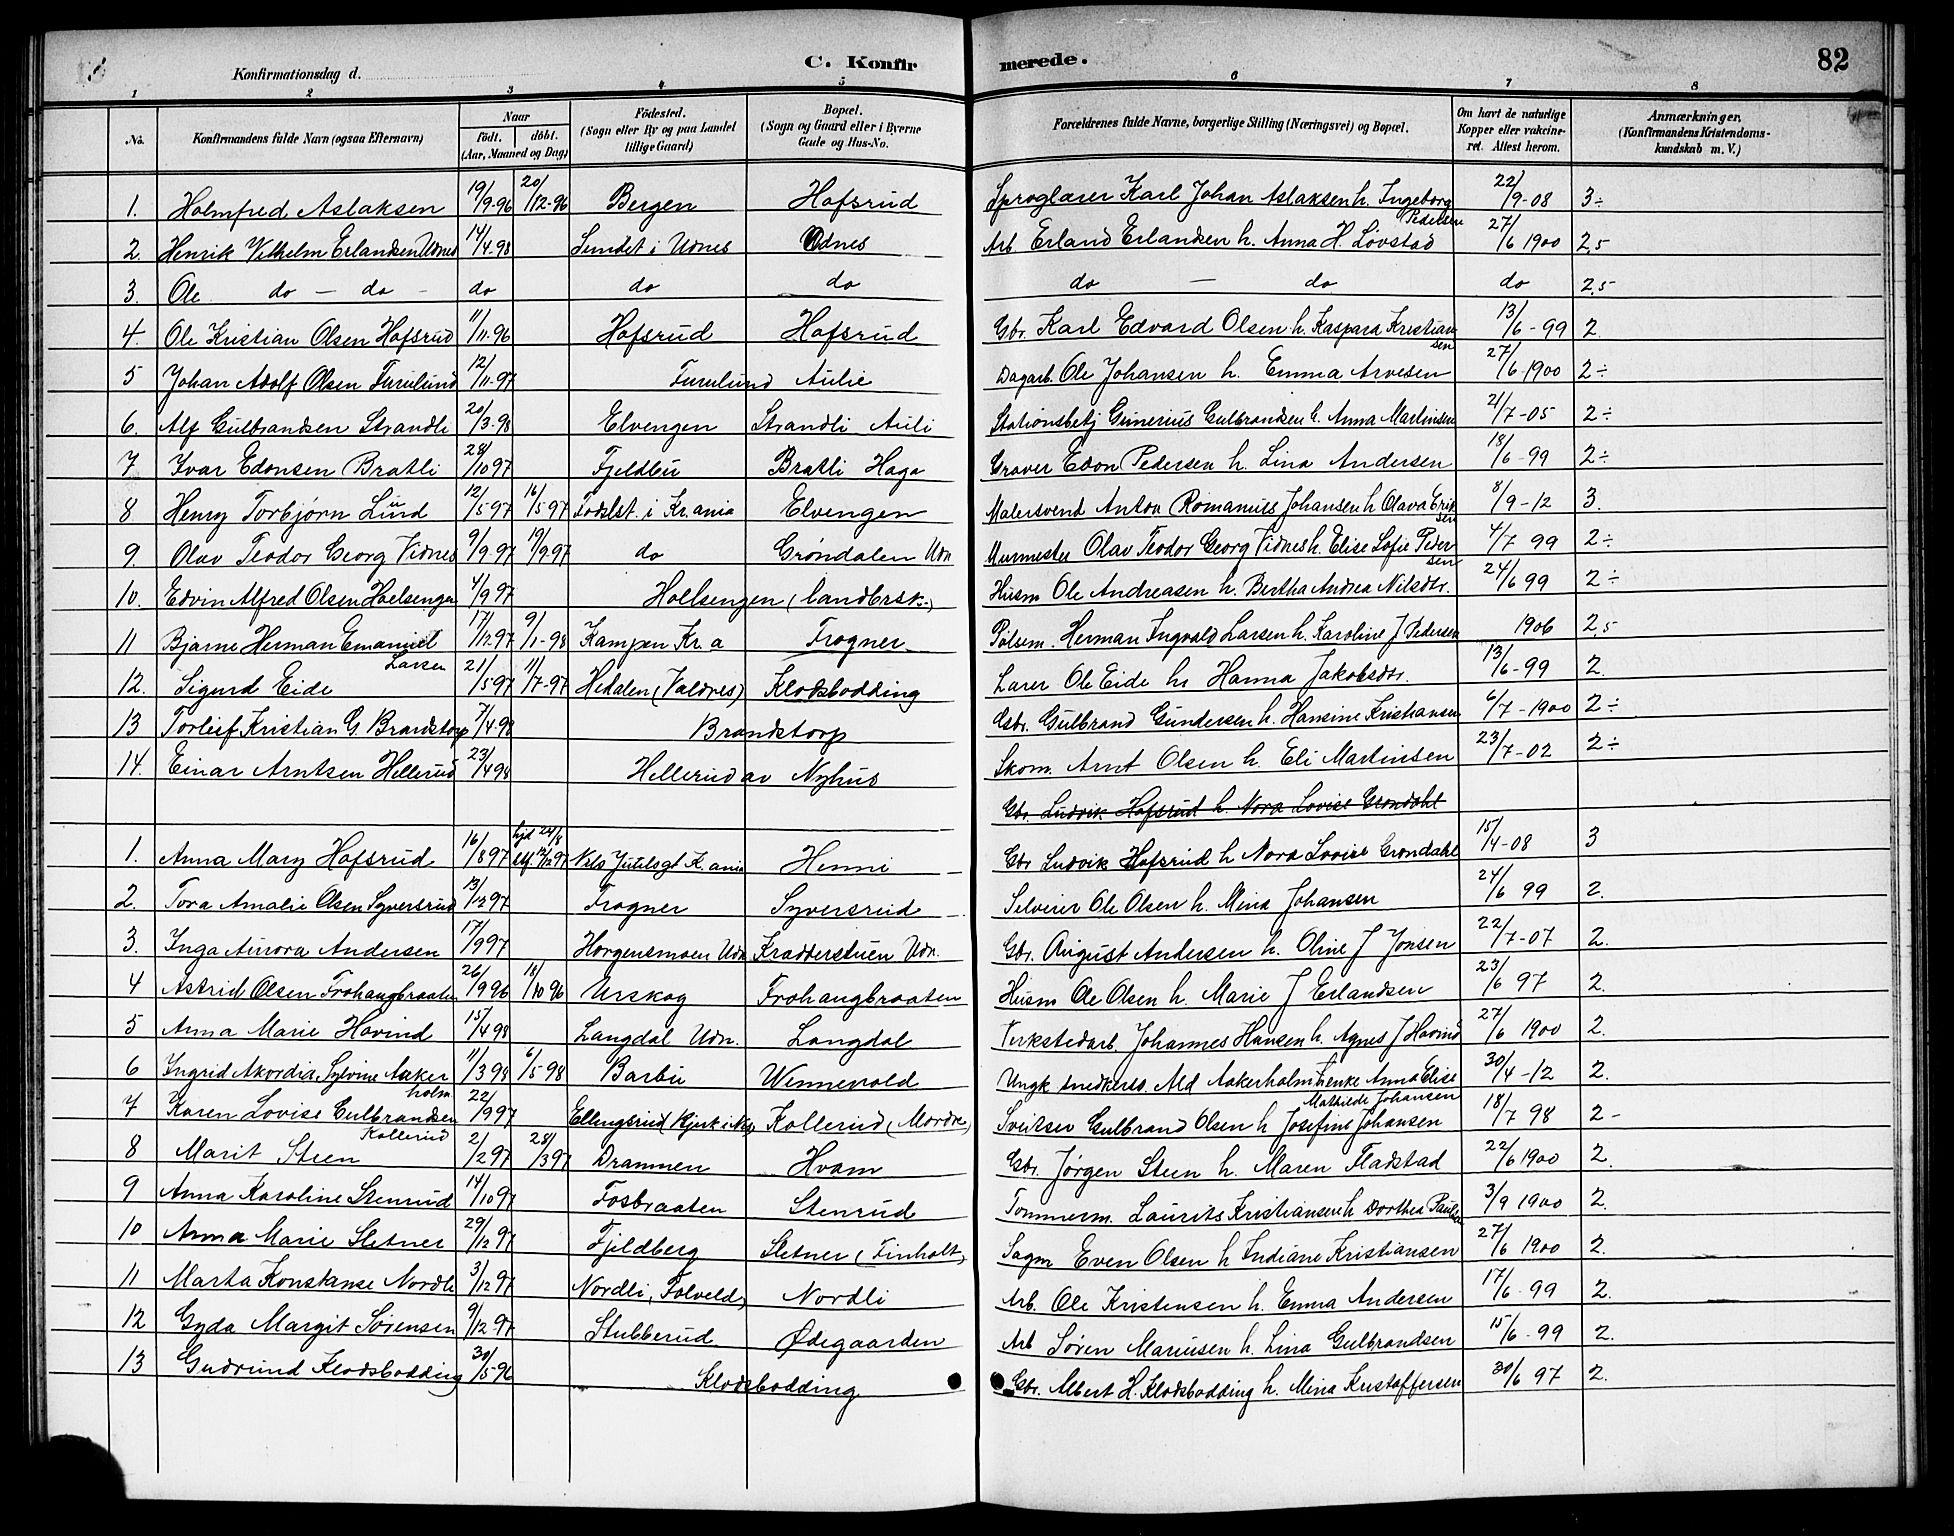 Konfirmationsdag d.
C. Konfirmerede.
82
1 2 3 4 5 6 7 8
No. Konfirmandens fulde Navn (ogsaa Efternavn) Naar født. døbt. (Aar, Maaned og Dag) Fødested. (Sogn eller By og paa Landet tillige Gaard) Bopæl. (Sogn og Gaard eller i Byerne Gade og Hus-No. Forældrenes fulde Navne, borgerlige Stilling (Næringsvei) og Bopæl. Om havt de naturlige Kopper eller vakcineret. Attest herom. Anmærkninger, (Konfirmandens Kristendomskundskab m. V.)
1. Holmfred Aslaksen 19/9-96 20/12-96 Bergen Hofsrud Sproglærer Karl Johan Aslaksen h. Ingeborg Pedersen 22/9-08 3÷
2. Henrik Vilhelm Erlandsen Udnes 14/4-98 Sundet i Udnes Udnes Arb. Erland Erlandsen h. Anna H. Løvstad 27/6 1900 2,5
3. Ole do - do - do do do do - do do 2,5
4. Ole Kristian Olsen Hofsrud 11/11-96 Hofsrud Hofsrud Gbr. Karl Edvard Olsen h. Kaspara Kristiansen 13/6-99 2.
5 Johan Adolf Olsen Furulund 12/11-97 Furulund Aulie Dagarb. Ole Johansen h. Emma Arvesen 27/6 1900 2÷
6. Alf Gulbrandsen Strandli 20/3-98 Elvengen Strandli Auli Stationsbetj Gunerius Gulbrandsen h. Anna Martinsen 21/7-05 2÷
7 Ivar Edonsen Bratli 28/10 97 Fjeldbu Bratli Haga Graver Edon Pedersen h. Lina Andersen 18/6-99 2÷
8 Henry Torbjørn Lund 12/5 97 16/5 97 Fødslst. i Kr.ania Elvengen Malersvend Anton Romanuis Johansen h Olava Eriksen 8/9-12 3.
9. Olav Teodor Georg Vidnes 9/9-97 19/9 97 do Grøndalen Udn Murmester Olav Teodor Georg Vidnes h. Elise Sofie Pedersen 4/7 99 2÷
10. Edvin Alfred Olsen Hoelsengen 4/9 97 Hoelsengen (landbrsk.) Husm Ole Andreasen h. Bertha Andrea Nilsdtr. 24/6 99 2÷
11 Bjarne Herman Emanuel Larsen 17/12 97 9/1-98 Kampen Kr.a Frogner Polsem. Herman Ingvald Larsen h. Karoline J Pedersen 1906 2,5
12. Sigurd Eide 21/5 97 11/7-97 Hedalen (Valdres) Klodsbodding Lærer Ole Eide h. Hanna Jakobsdtr. 13/6-99 2.
13 Torleif Kristian G. Brandstorp 7/4-98 Brandstorp Gbr. Gulbrand Gundersen h. Hansine Kristiansen 6/7-1900 2÷
14. Einar Arntsen Hellerud 23/4 98 Hellerud av Nyhus Skom. Arnt Olsen h. Eli Martinsen 23/7-02 2÷
Gbr. Ludvik Hofsrud h. Nora Lovise Grøndahl
1. Anna Mary Hofsrud 16/8 97 hjd 24/8 stf 12/12 97 Nils Juulsgt Kr.ania Henni Gbr Ludvik Hofsrud h Nora Lovise Grøndahl 15/4-08 3
2. Tora Amalie Olsen Syversrud 13/12 97 Frogner Syversrud Selveier Ole Olsen h. Mina Johansen 24/6 99 2.
3. Inga Aurora Andersen 17/9 97 Horgensmoen Udn. Kradderstuen Udn. Gbr. August Andersen h. Oline J Jonsen 22/7-07 2.
4 Astrid Olsen Frohaugbraaten 26/9 96 18/10 96 Urskog Frohaugbraaten Husm Ole Olsen h. Marie J Erlandsen 23/6 97 2.
5 Anna Marie Hovind 15/4 98 Langdal Udn. Langdal Verkstedarb. Johannes Hansen h. Agnes J Hovind 27/6 1900 2.
6 Ingrid Akordia Sylvine Aakerholm 11/3 98 6/5 98 Barbu Wennevold Ungk. snedkersv. Ald Aakerholm Enke Anna Elise Mathilde Johansen 30/4-12 2.
7 Karen Lovise Gulbrandsen Kollerud 22/9 97 Ellengsrud (Kjerk i Nes) Kollerud (Mordre) Sveitser Gulbrand Olsen h Josefine Johansen 18/7 98 2-
8 Marit Steen 2/2 97 28/3 97 Drammen Hvam Gbr. Jørgen Steen h. Maren Fladstad 22/6 1900 2.
9 Anna Karoline Stenrud 14/10 97 Fosbraaten Stenrud Tommerm. Laurits Kristiansen h Dorthea Paulsen 3/9 1900 2.
10 Anna Marie Sletner 29/12 97 Fjeldberg Sletner (Finholt) Sagm Even Olsen h Indiane Kristiansen 27/6 1900 2.
11 Marta Konstanse Nordli 3/12 97 Nordli, Folveld, Nordli Arb. Ole Kristensen h. Emma Andersen 17/6-99 2.
12 Gyda Margit Sørensen 9/12 97 Stubberud Ødegaarden Arb Søren Mariusen h. Lina Gulbrandsen 15/6-99 2.
13 Gudrund Klodsbodding 30/5-96 Klodsbodding Gbr. Albert H. Klodsbodding h. Mina Kristoffersen 30/6 97 2.